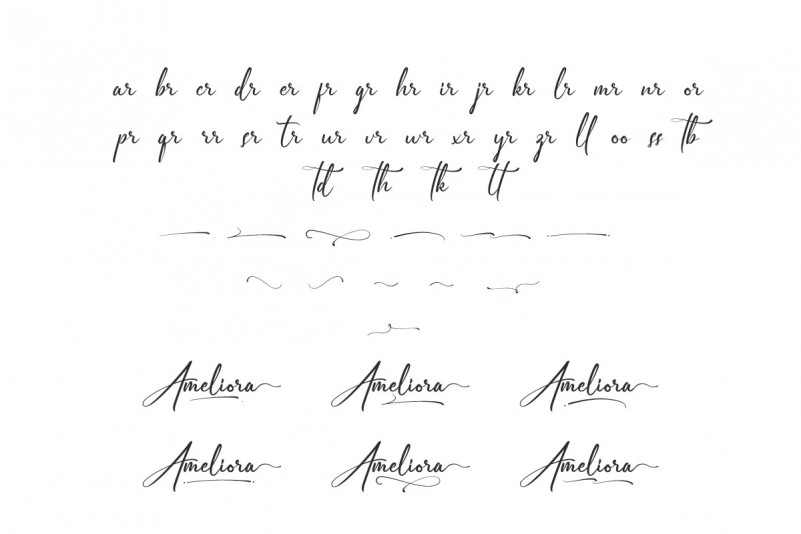 ar br cr dr er fr gr hr ir jr kr lr mr nr or
pr qr rr sr tr ur vr wr xr yr zr ll oo ss tb
td th tk tt
Ameliora Ameliora Ameliora
Ameliora Ameliora Ameliora